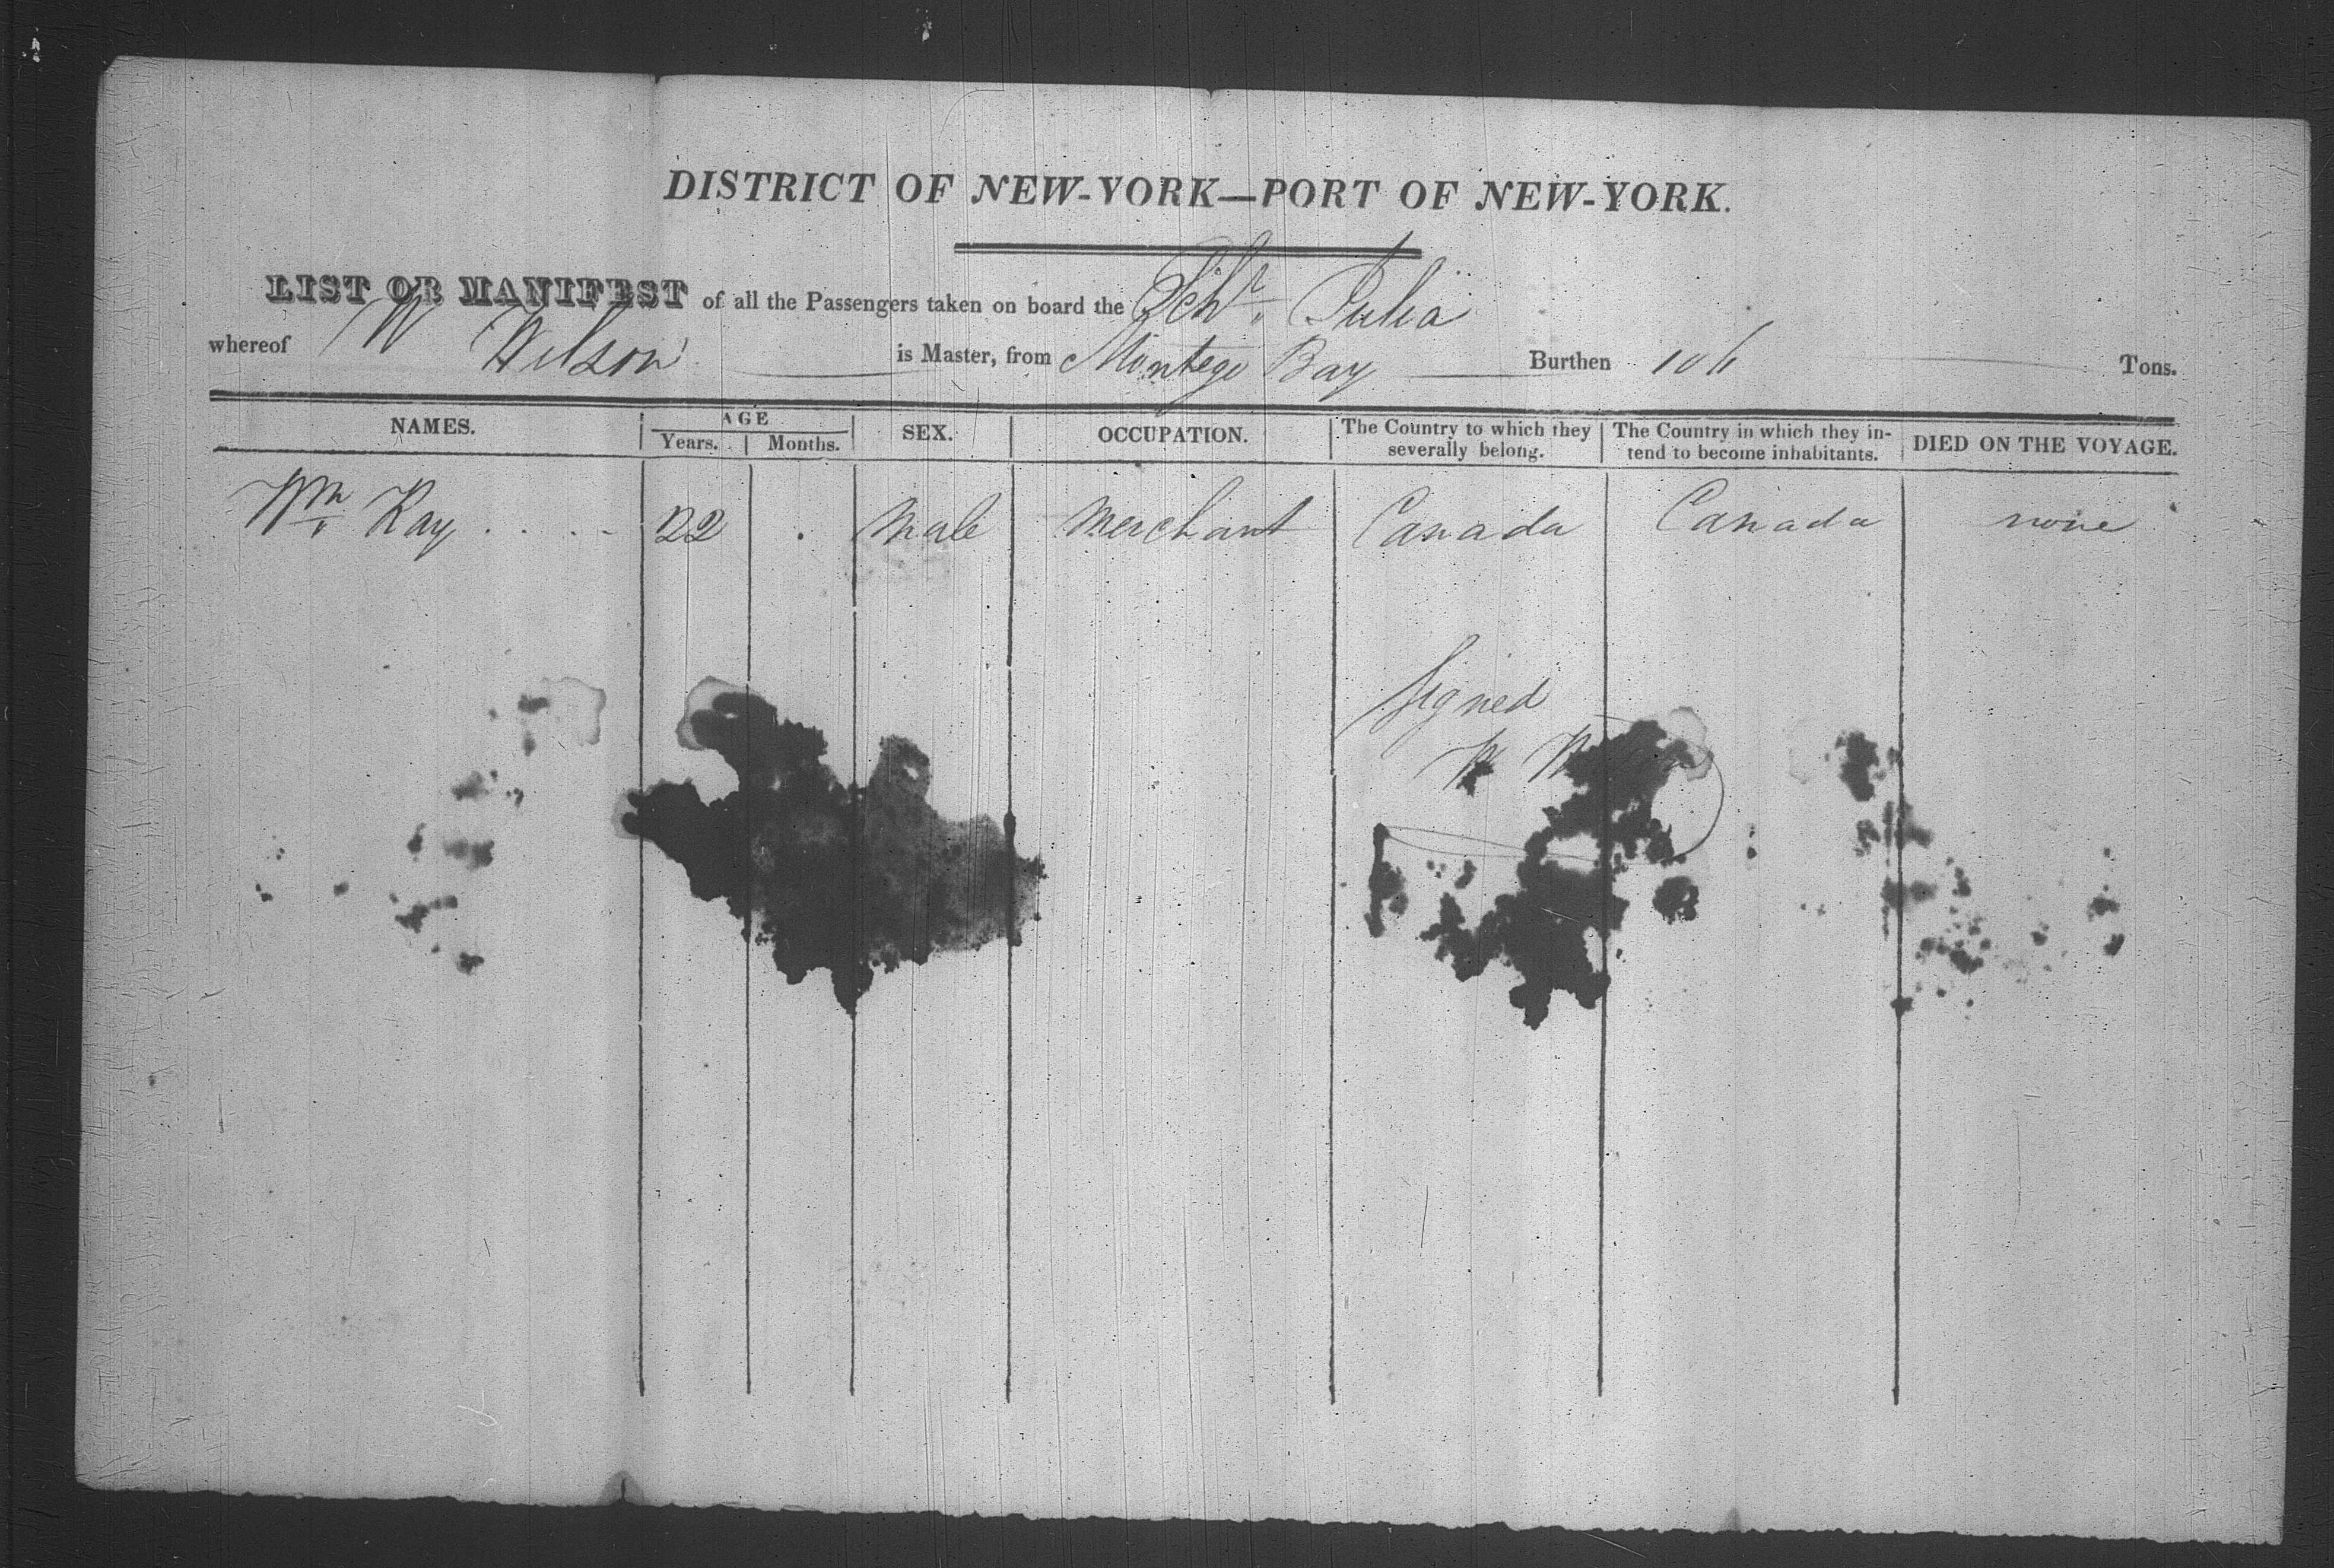 DISTRICT OF NEW-YORK—PORT OF NEW-YORK.
LIST OR MANIFEST of all the Passengers taken on board the Schr. Julia
whereof W Wilson is Master, from Montego Bay Burthen 106 Tons.
NAMES. AGE SEX. OCCUPATION. The Country to which they severally belong. The Country in which they intend to become inhabitants. DIED ON THE VOYAGE.
Years. Months.
Wm Ray 22 Male Merchant Canada Canada none
Signed
W